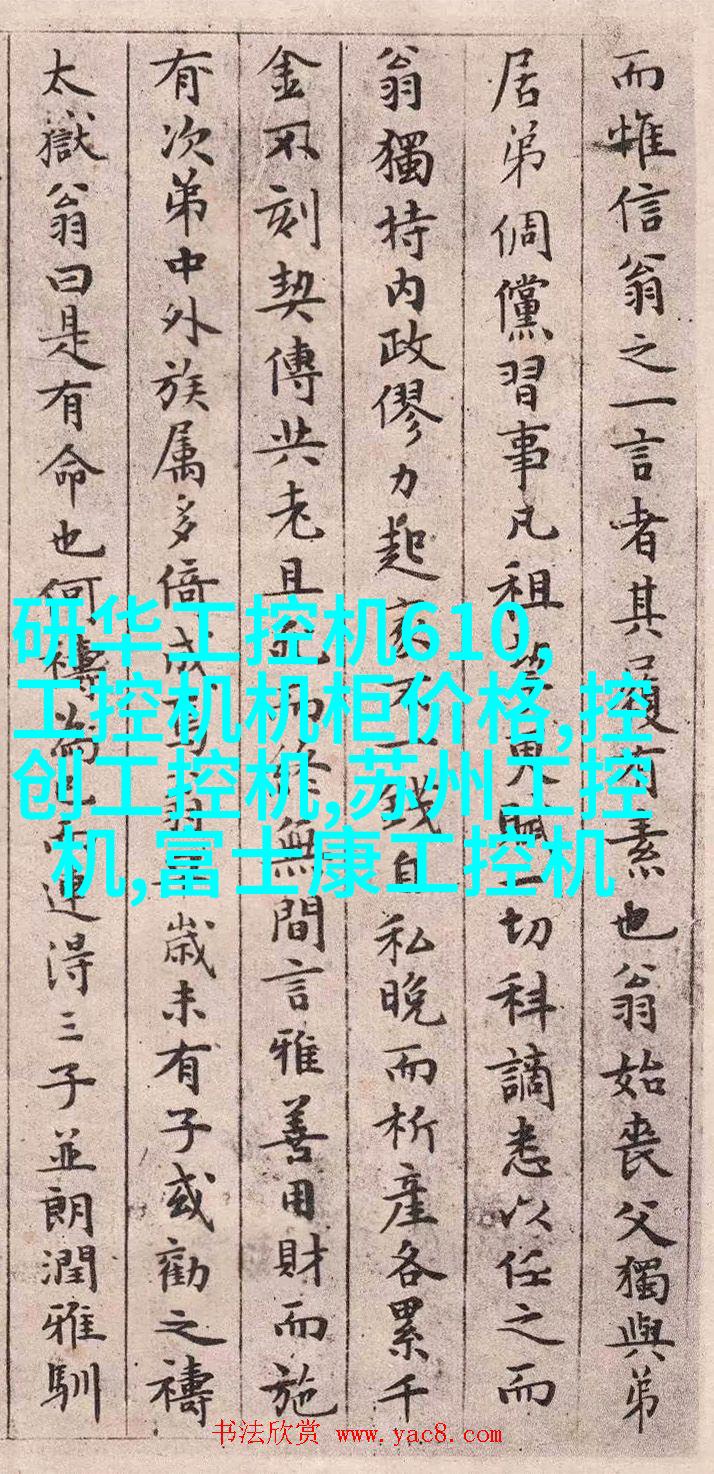 而惟信翁之一言者其履有素也翁始喪父獨與弟
居弟倜儻習事凡租入切科謫悉以任之而
翁獨持内政僇力起家不一錢自私晚而析產各累千
金不刻契傳共老且死而終無間言雅善用財而施
有次第中外族属多倚成歲未有子或勸之禱
太嶽翁曰是有命也何禱而連得三子並朗潤雅馴
研华工控机610,
工控机机柜价格,控
创工控机,苏州工控
机,富士康工控机
书法欣赏 www.yac8.com